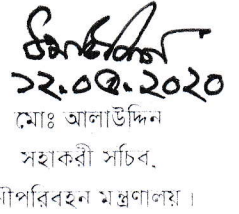 ১২.০৫.২০২০
মোঃ আলাউদ্দিন
সহাকরী সচিব,
নৌপরিবহন মন্ত্রণালয়।